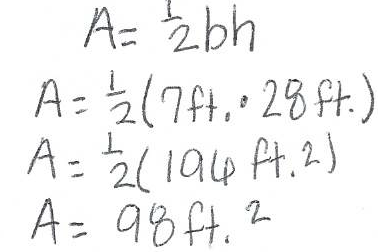 A = 1/2 bh
A = 1/2 (7ft. · 28 ft.)
A = 1/2 (194 ft. 2)
A = 98 ft. ²